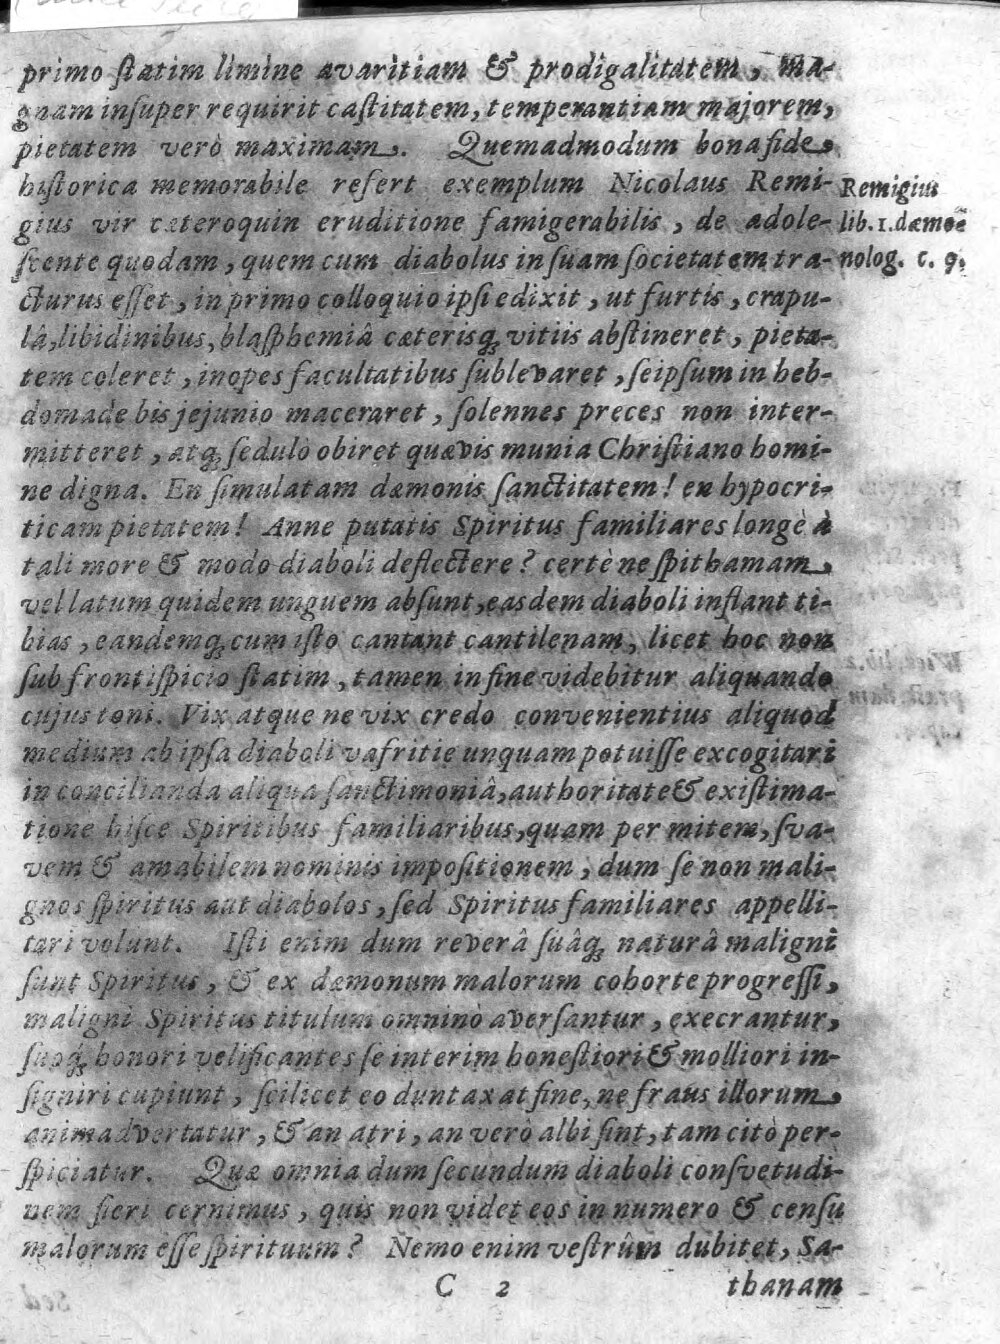 primo ſtatim limine avaritiam & prodigalitatem, ma-
gnam inſuper requirit caſtitatem, temperantiam majorem,
pietatem verò maximam. Quemadmodum bona fide
hiſtorica memorabile refert exemplum Nicolaus Remi-
gius vir cæteroquin eruditione famigerabilis, de adole-
ſcente quodam, quem cum diabolus in ſuam ſocietatem tra-
cturus eſſet, in primo colloquio ipſi edixit, ut furtis, crapu-
lâ, libidinibus, blaſphemiâ cæterisq́; vitiis abſtineret, pieta-
tem coleret, inopes facultatibus ſublevaret, ſeipſum in heb-
domade bis jejunio maceraret, ſolennes preces non inter-
mitteret, atq́; ſedulò obiret quævis munia Chriſtiano homi-
ne digna. En ſimulatam dæmonis ſanctitatem! en hypocri-
ticam pietatem! Anne putatis Spiritus familiares longè à
tali more & modo diaboli deflectere? certè ne ſpithamam,
vel latum quidem unguem abſunt, easdem diaboli inflant ti-
bias, eandemq́; cum iſto cantant cantilenam, licet hoc non
ſub frontiſpicio ſtatim, tamen in fine videbitur aliquando
cujus toni. Vix atque ne vix credo convenientius aliquod
medium ab ipſa diaboli vafritie unquam potuiſſe excogitari
in concilianda aliqua ſanctimoniâ, authoritate & exiſtima-
tione hiſce Spiritibus familiaribus, quam per mitem, ſva-
vem & amabilem nominis impoſitionem, dum ſe non mali-
gnos ſpiritus aut diabolos, ſed Spiritus familiares appelli-
tari volunt. Iſti enim dum reverâ ſuâq́; naturâ maligni
ſunt Spiritus, & ex dæmonum malorum cohorte progreſſi,
maligni Spiritus titulum omninò averſantur, execrantur,
ſuoq́; honori velificantes ſe interim honeſtiori & molliori in-
ſigniri cupiunt, ſcilicet eo duntaxat fine, ne fraus illorum
animadvertatur, & an atri, an verò albi ſint, tam citò per-
ſpiciatur. Quæ omnia dum ſecundum diaboli conſvetudi-
nem fieri cernimus, quis non videt eos in numero & cenſu
malorum eſſe ſpirituum? Nemo enim veſtrûm dubitet, Sa-
C 2 thanam
Remigius
lib. 1. dæmo-
nolog. c. 9.